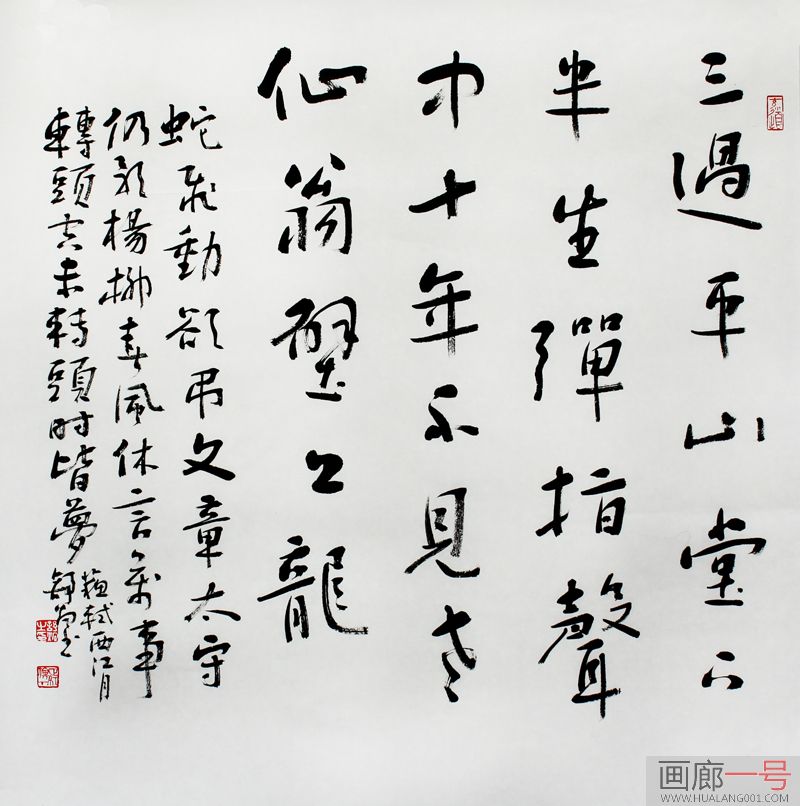 三過平山堂下
半生彈指聲
中十年不見老
仙翁壁上龍
蛇飛動欲吊文章太守
仍歌楊柳春風休言萬事
轉頭空未轉頭时皆夢
蘇軾西江月
画廊一号
WWW.HUALANG001.COM